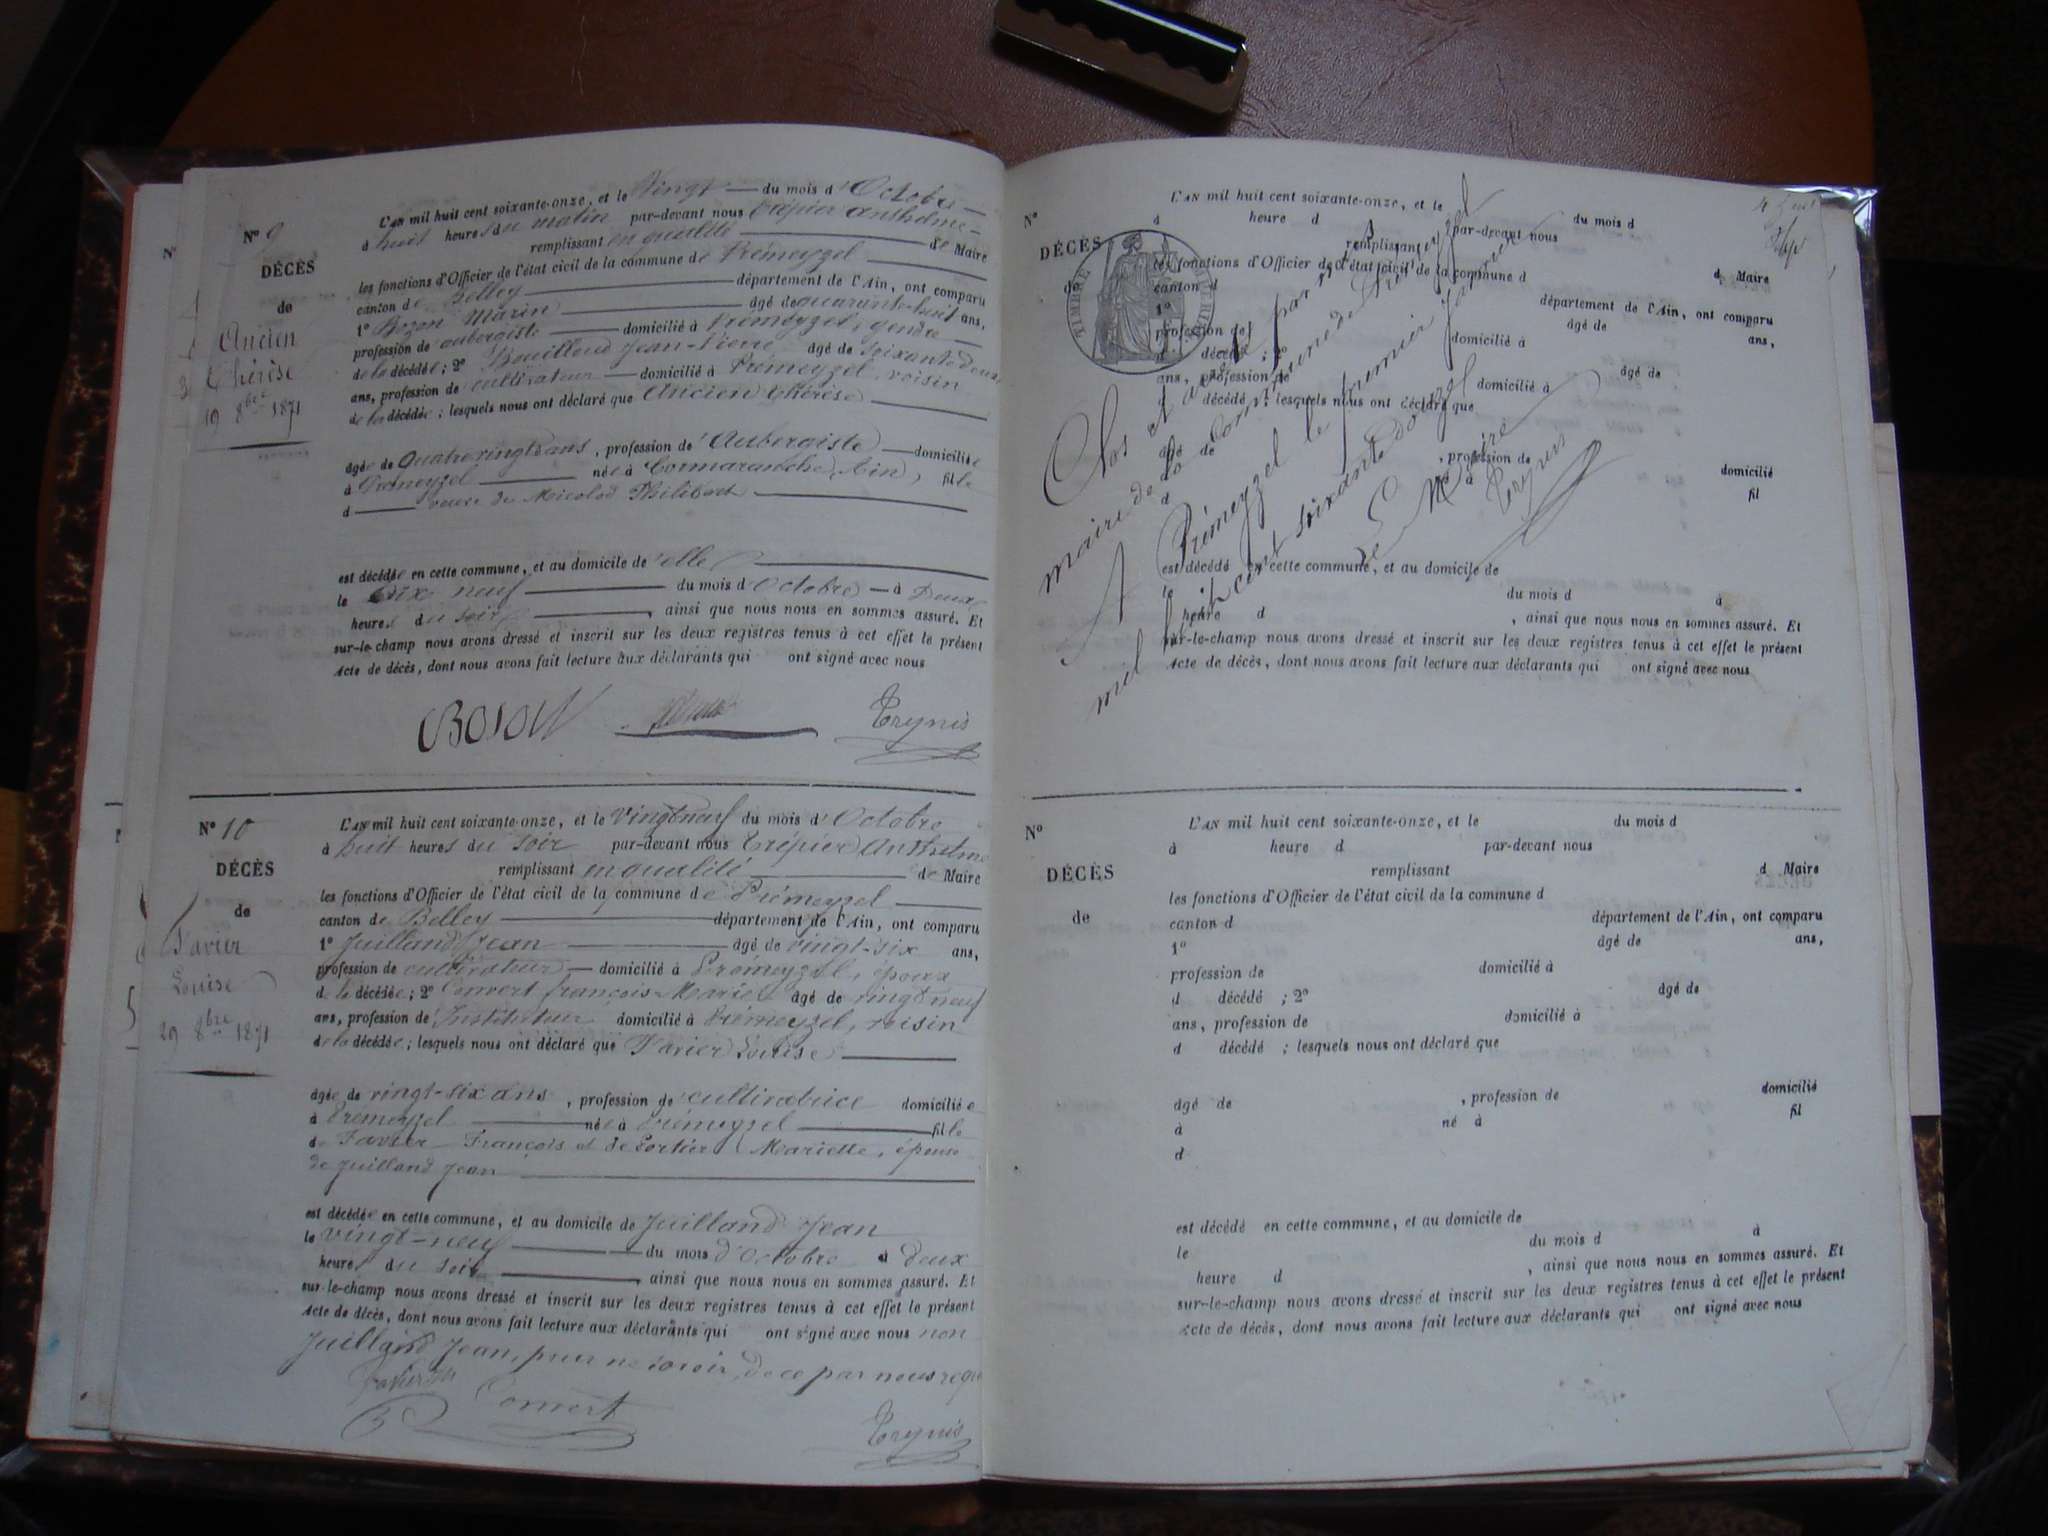 N° 9
DÉCÈS
de
Ancien
Thérèse
19 8bre 1871
L'AN mil huit cent soixante-onze, et le Vingt du mois d'Octobre
à huit heures du matin par-devant nous Trépier Anthelme
remplissant en qualité de Maire
les fonctions d'Officier de l'état civil de la commune de Prémeyzel
canton de Belley département de l'Ain, ont comparu
1° Bozon Marin âgé de quarante-huit ans,
profession de aubergiste domicilié à Prémeyzel, gendre
de la décédée; 2° Bouilloud Jean-Pierre âgé de soixante deux
ans, profession de cultivateur domicilié à Prémeyzel, voisin
de la décédée; lesquels nous ont déclaré que Ancien Thérèse
âgée de Quatre vingt ans, profession d'Aubergiste domiciliée
à Prémeyzel née à Cormaranche, Ain, fille
d veuve de Micolod Philibert
est décédée en cette commune, et au domicile d'elle
le dix neuf du mois d'Octobre à Deux
heures du soir, ainsi que nous nous en sommes assuré. Et
sur-le-champ nous avons dressé et inscrit sur les deux registres tenus à cet effet le présent
Acte de décès, dont nous avons fait lecture aux déclarants qui ont signé avec nous
BOSON
N° 10
DÉCÈS
de
Tavier
Louise
29 8bre 1871
L'AN mil huit cent soixante-onze, et le Vingt neuf du mois d'Octobre
à huit heures du soir par-devant nous Trépier Anthelme
remplissant en qualité de Maire
les fonctions d'Officier de l'état civil de la commune de Prémeyzel
canton de Belley département de l'Ain, ont comparu
1° Juilland Jean âgé de vingt-six ans,
profession de cultivateur domicilié à Prémeyzel, époux
de la décédée; 2° Convert François-Marie âgé de vingt neuf
ans, profession d'Instituteur domicilié à Prémeyzel, voisin
de la décédée; lesquels nous ont déclaré que Tavier Louise
âgée de vingt-six ans, profession de cultivatrice domiciliée
à Prémeyzel née à Prémeyzel fille
de Tavier François et de Portier Mariette, épouse
de Juilland Jean
est décédée en cette commune, et au domicile de Juilland Jean
le vingt-neuf du mois d'Octobre à deux
heures du soir, ainsi que nous nous en sommes assuré. Et
sur-le-champ nous avons dressé et inscrit sur les deux registres tenus à cet effet le présent
Acte de décès, dont nous avons fait lecture aux déclarants qui ont signé avec nous non
Juilland Jean, pour ne savoir, de ce par nous requis
Convert
N°
DÉCÈS
de
TIMBRE
L'AN mil huit cent soixante-onze, et le du mois d
à heure d par-devant nous
remplissant d Maire
les fonctions d'Officier de l'état civil de la commune d
canton d département de l'Ain, ont comparu
1° âgé de ans,
profession de domicilié à
d décédé ; 2° âgé de
ans, profession de domicilié à
d décédé ; lesquels nous ont déclaré que
âgé de , profession de domicilié
à né à fil
d
est décédé en cette commune, et au domicile de
le du mois d à
heure d , ainsi que nous nous en sommes assuré. Et
sur-le-champ nous avons dressé et inscrit sur les deux registres tenus à cet effet le présent
Acte de décès, dont nous avons fait lecture aux déclarants qui ont signé avec nous
Clos et arrêté par nous
maire de la Commune de Prémeyzel
A Prémeyzel le premier Janvier
mil huit cent soixante douze
Le Maire
N°
DÉCÈS
de
L'AN mil huit cent soixante-onze, et le du mois d
à heure d par-devant nous
remplissant d Maire
les fonctions d'Officier de l'état civil de la commune d
canton d département de l'Ain, ont comparu
1° âgé de ans,
profession de domicilié à
d décédé ; 2° âgé de
ans, profession de domicilié à
d décédé ; lesquels nous ont déclaré que
âgé de , profession de domicilié
à né à fil
d
est décédé en cette commune, et au domicile de
le du mois d à
heure d , ainsi que nous nous en sommes assuré. Et
sur-le-champ nous avons dressé et inscrit sur les deux registres tenus à cet effet le présent
Acte de décès, dont nous avons fait lecture aux déclarants qui ont signé avec nous